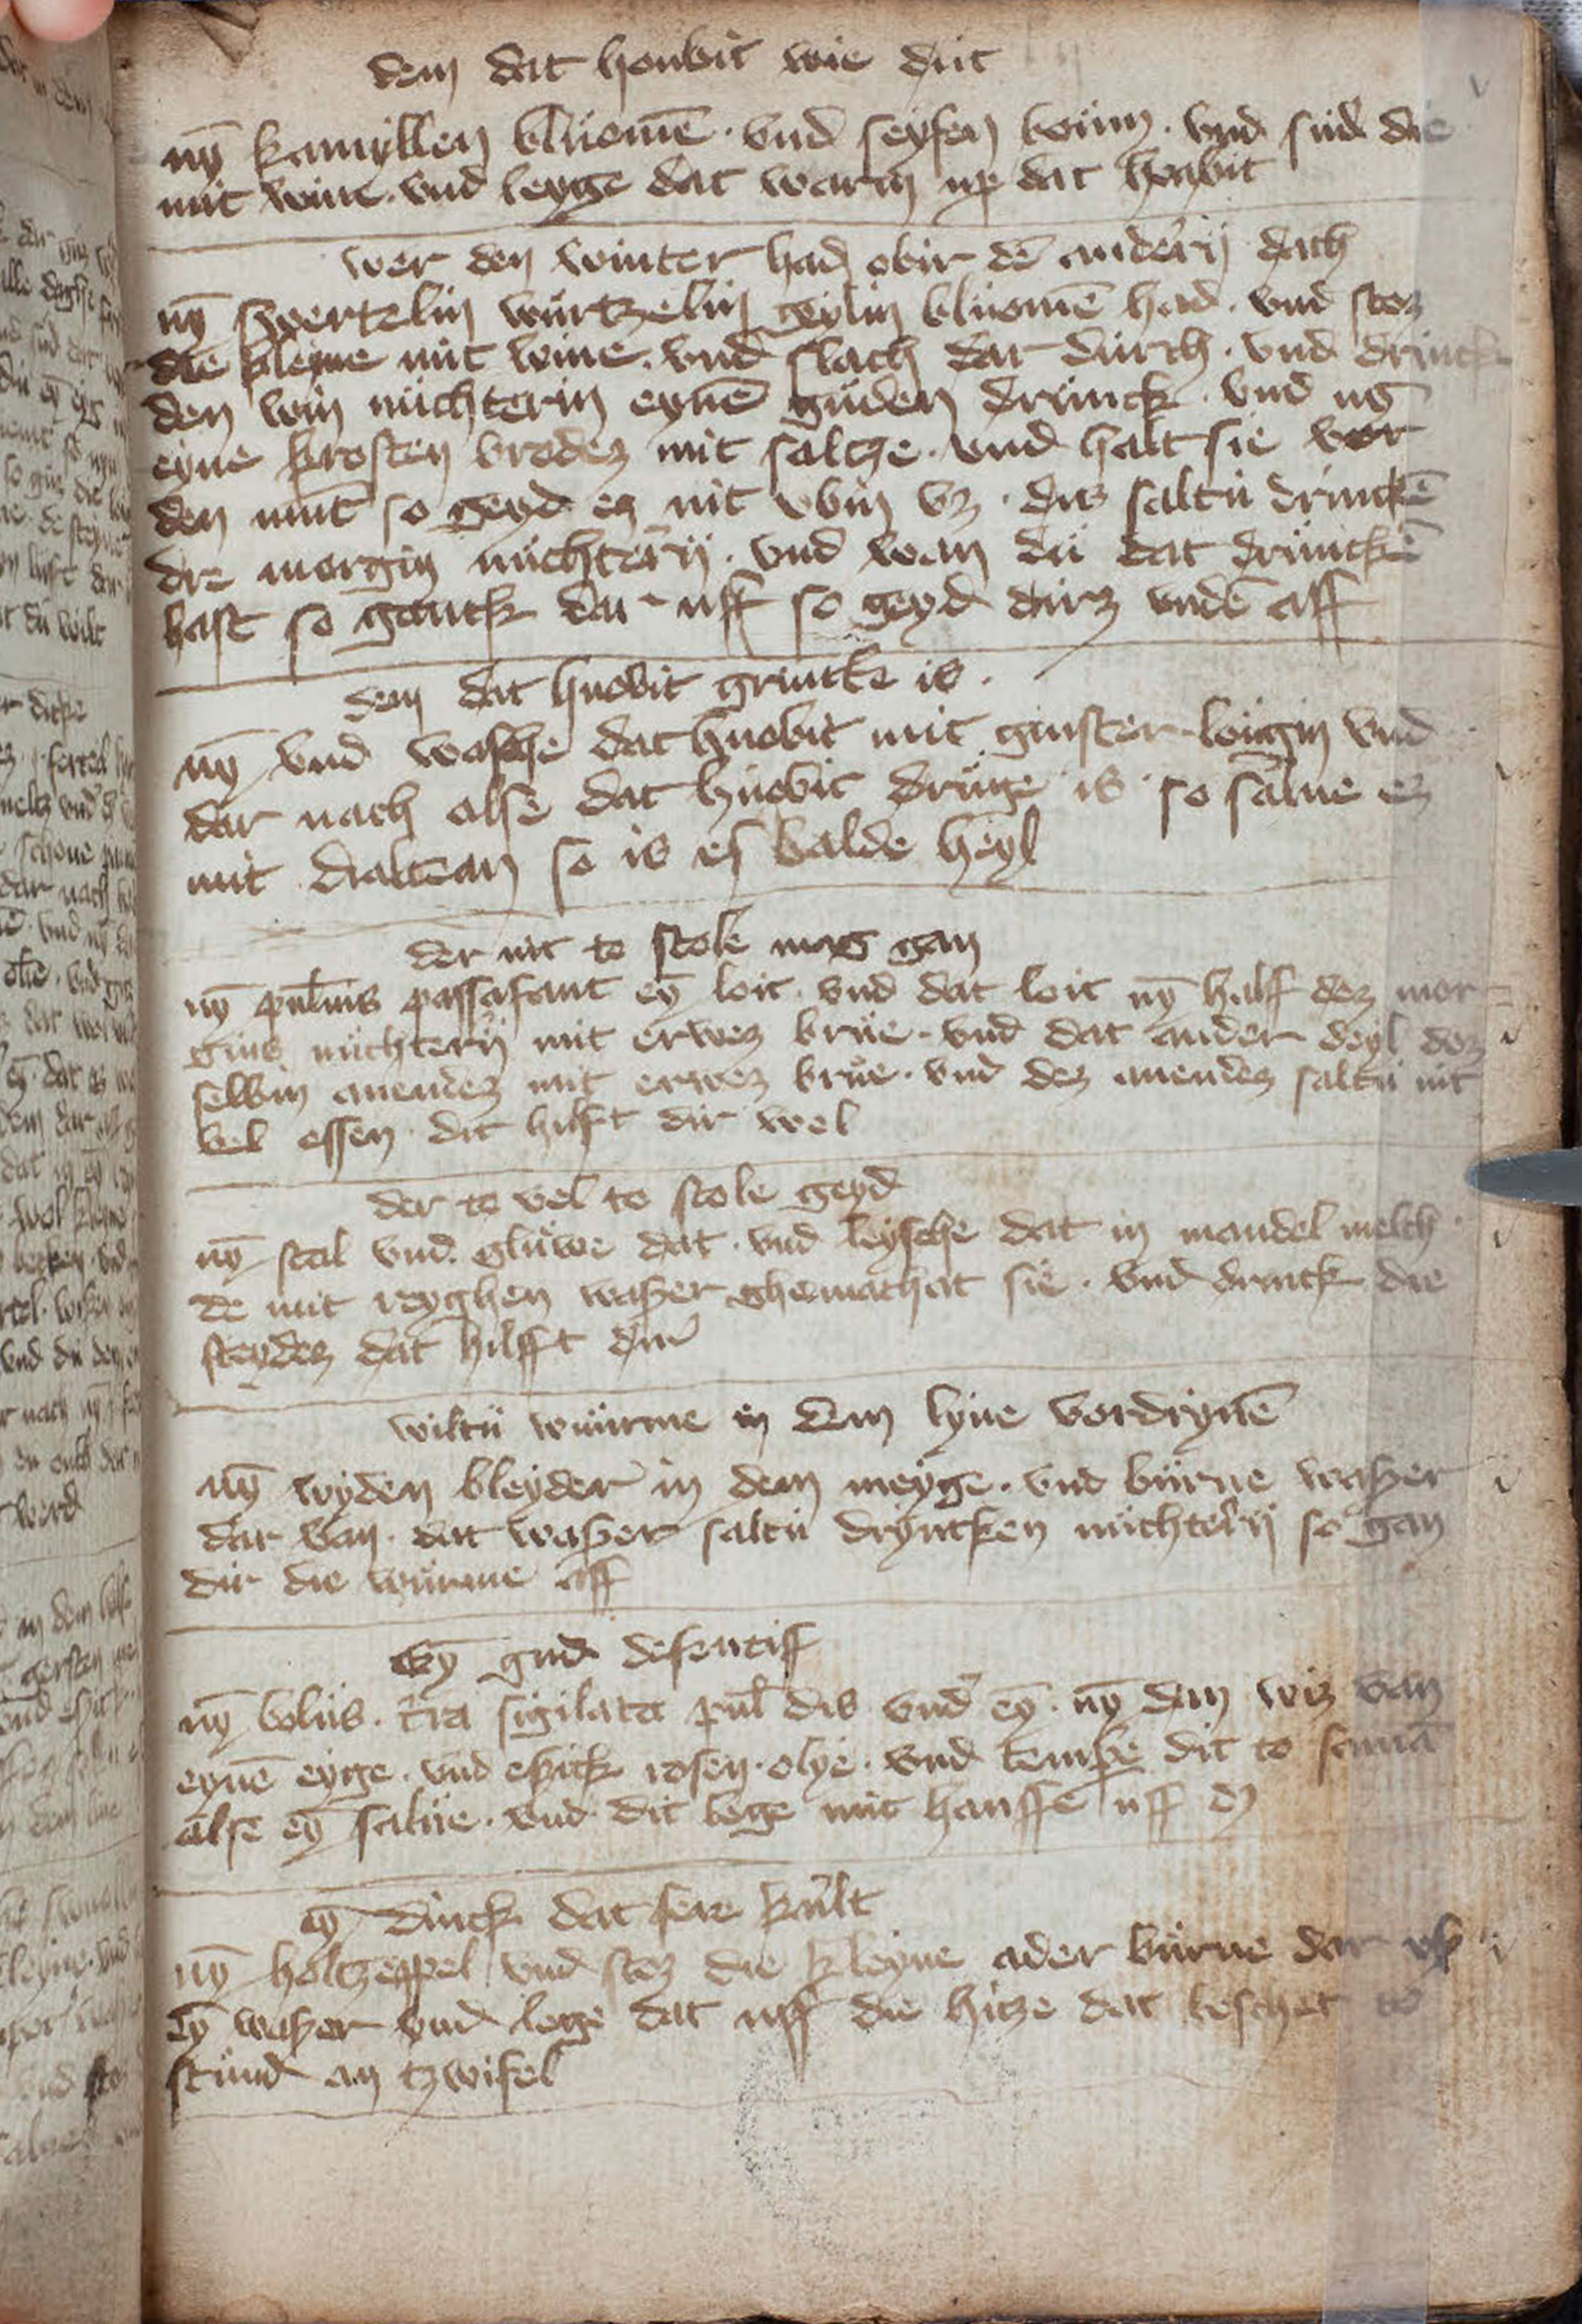 dem dat houbit wie dut
nȳ kamyllen bluomē · vnd seyfen boům · vnd sud die
mit wine · vnd leyge dat warm up dat houbit
wer den winter had obir dē anderij dach
nȳ swertelin würtzelin geylin bluomē had · vnd stoz
die kleine mit wine · vnd slach dar durch · vnd drincke
den win nüchterin eynē guden drunck · vnd nȳ
eyne krosten brodez mit saltze · vnd halt sie vor
den munt so geyd ez nit obin vz · dis saltu drinckē
dre morgin nüchterij · vnd wan du dat druncken
hast so ganck dar uff so geyd dirz vndē aff
dem dat huobit grintke is ·
nȳ vnd wasche dat huobit mit ginster loügin vnd
dar nach alse dat huobit druge is so salue ez
mit dialtean so is es balde heyl
der nit to stole mag gan
nȳ puluis passafant eȳ loit · vnd dat loit nȳ halff dez mor
gins nüchterij mit erwez brue · vnd dat ander deyl dez
selbin auendez mit erwez brue · vnd dez auendez saltu nit
vel essen · dit hilft dir wol
der to vel to stole geyd
nȳ stal vnd gluwe dat · vnd leysche dat in mandel melch
de mit reyghen waßer ghemachat sie · vnd drinck die
steydez dat hilfft dir
wiltu wuürme in dem lyue vordryuē
nȳ wyden bleyder in dem meyge · vnd bürne waßer
dar van · dat waßer saltu dryncken nüchterij so gan
dir die würme aff
Eȳ gud defentiff
nȳ bolus · t̄ra sigilata pul̄ dis vnd eȳ · nȳ dan wiz van
eynē eyge · vnd eßick rosen olye · vnd tempe dit to samā
alse eȳ salue · vnd dit lege mit hanffe uff
eȳ dinck dat sere kult
nȳ holtzeppel vnd stoz die kleyne ader bürne dar vß
eȳ waßer vnd lege dat uff die hitze dat leschet to
stund an tzwifel